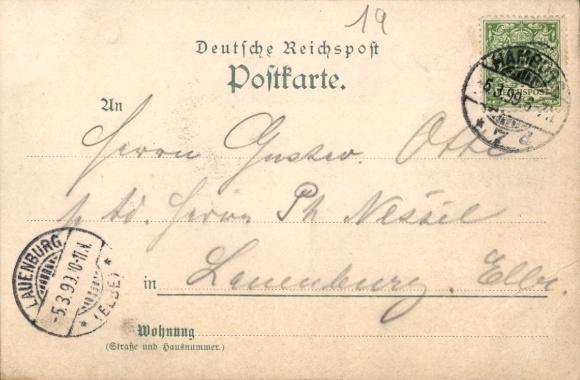 19
Deutsche Reichspost
Postkarte.
HAMBURG
5.3.99.
* 7 d
REICHSPOST
An
Herrn Gustav. Otte
p. ad. Herrn Ph Nessil
in Lauenburg. Elbe.
LAUENBURG
-5.3.99.10-11.N.
* (ELBE) *
Wohnung
(Straße und Hausnummer.)